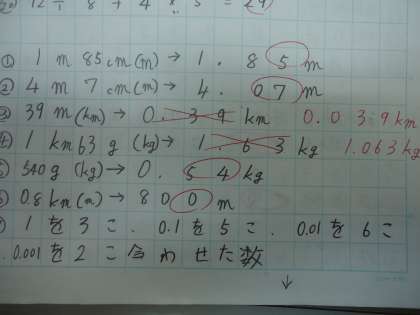 12 ÷ 8 + 4 × 5 = 29
① 1 m 85 cm (m) → 1.85 m
② 4 m 7 cm (m) → 4.07 m
③ 39 m (km) → 0.39 km 0.039km
1 km 63 g (kg) → 1.63 kg 1.063kg
540g (kg) → 0.54 kg
0.8km (m) → 800 m
1を3こ、0.1を5こ、0.01を6こ
0.001を2こ合わせた数
↓